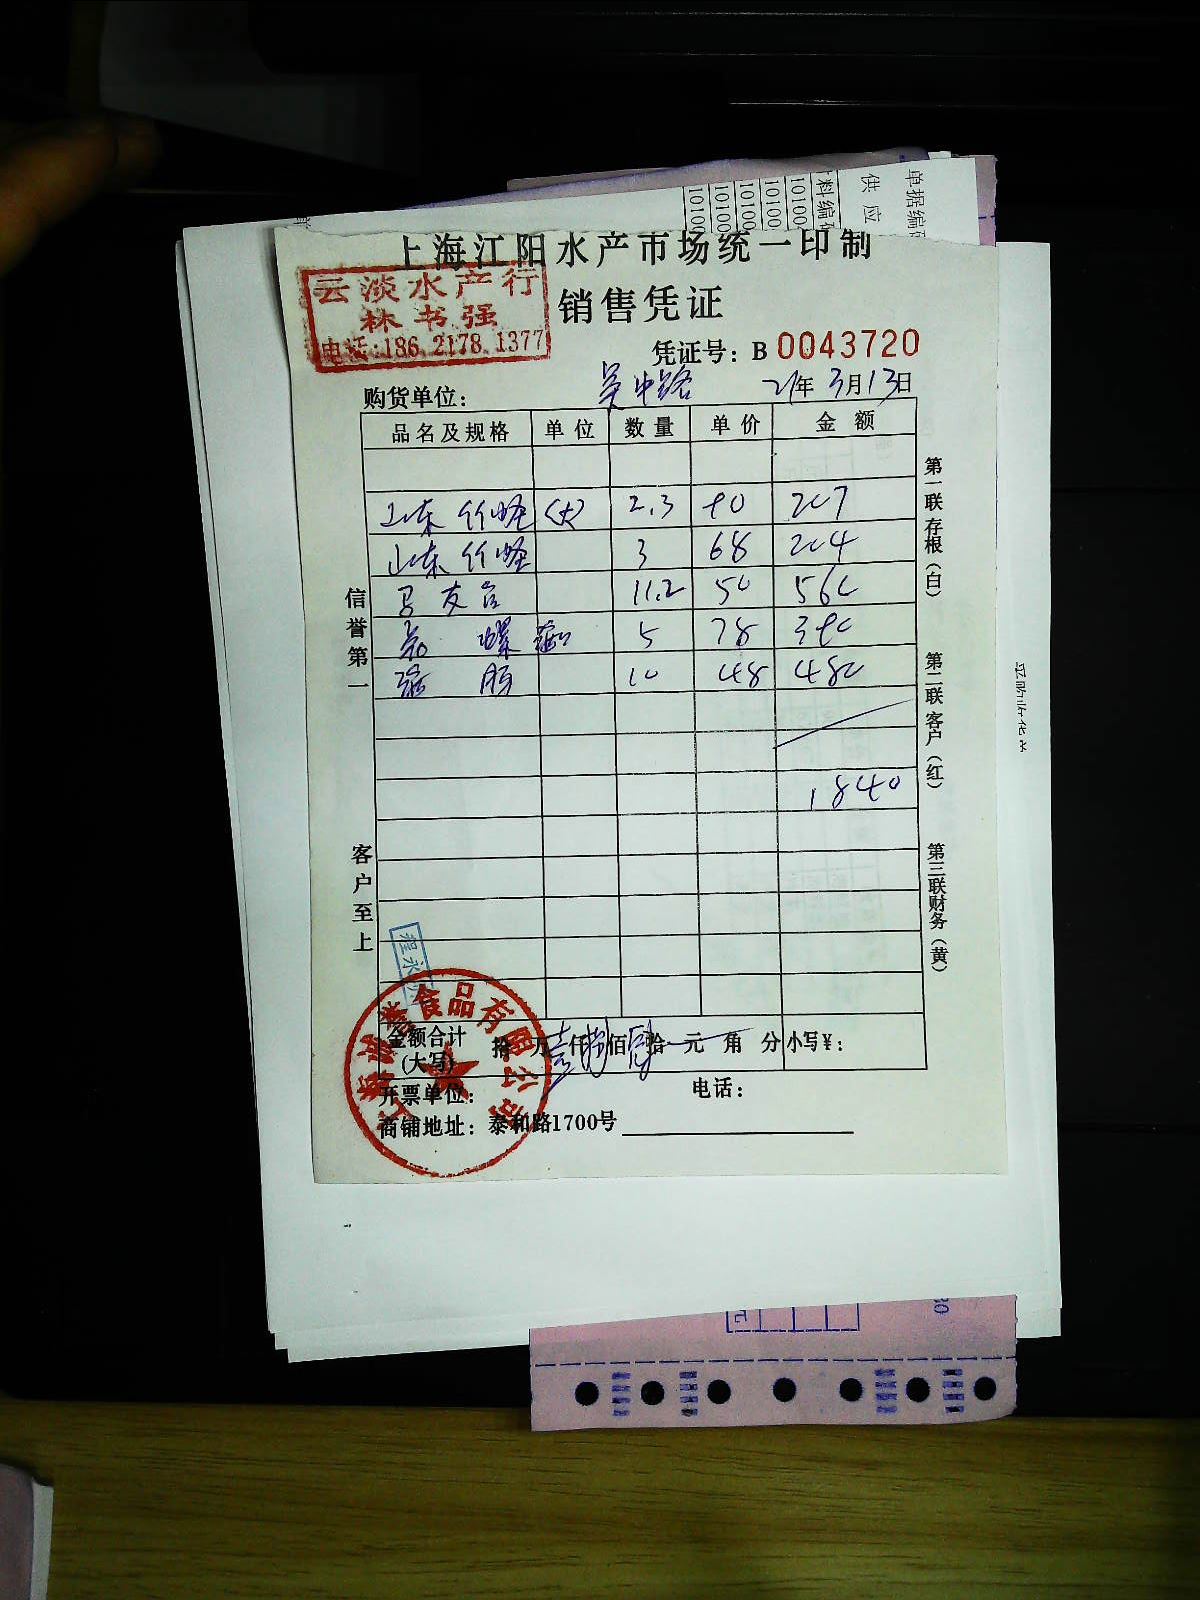 单据编码
供应
料编码
10100
10100
10100
10100
10100
上海江阳水产市场统一印制
云淡水产行
林书强
电话:186.2178.1377
销售凭证
凭证号: B 0043720
购货单位: 吴中路 21年3月13日
品名及规格 单位 数量 单价 金额
山东竹蛏 (大) 2.3 90 207
山东竹蛏 3 68 204
11.2 50 560
螺 5 78 390
10 48 480
1840
信誉第一
客户至上
第一联存根(白)
第二联客户(红)
第三联财务(黄)
程永
上海诚誉食品有限公司
金额合计(大写) 拾 万壹仟捌佰肆拾 元 角 分 小写¥:
开票单位: 电话:
商铺地址: 泰和路1700号